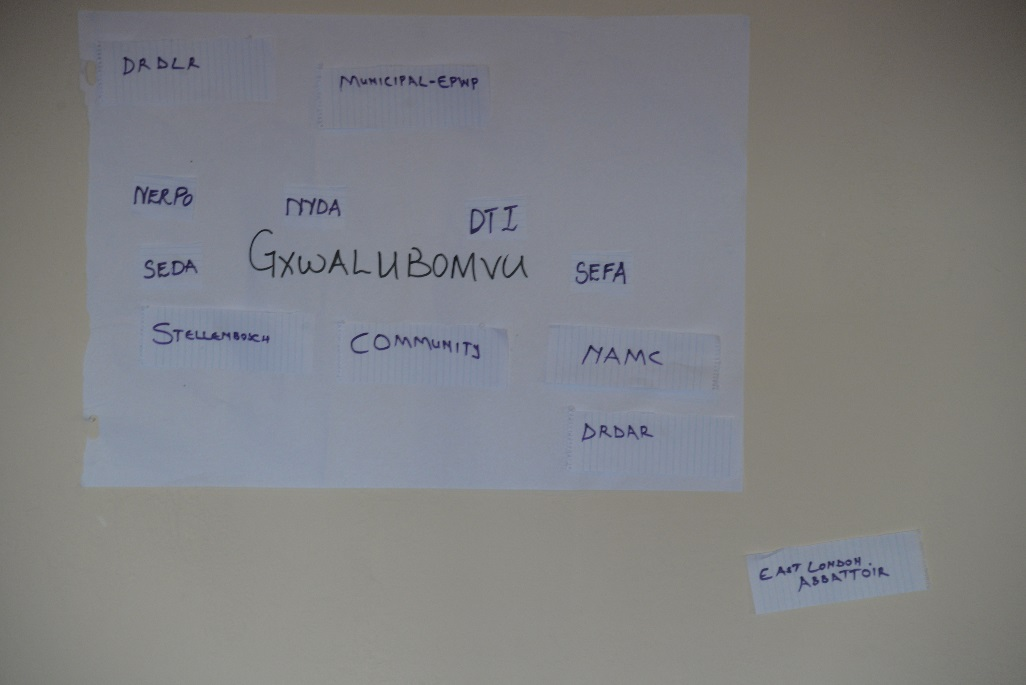 DRDLR
MUNICIPAL-EPWP
NERPO
NYDA
DTI
SEDA
GXWALUBOMVU
SEFA
STELLENBOSCH
COMMUNITY
NAMC
DRDAR
EAST LONDON.
ABBATTOIR